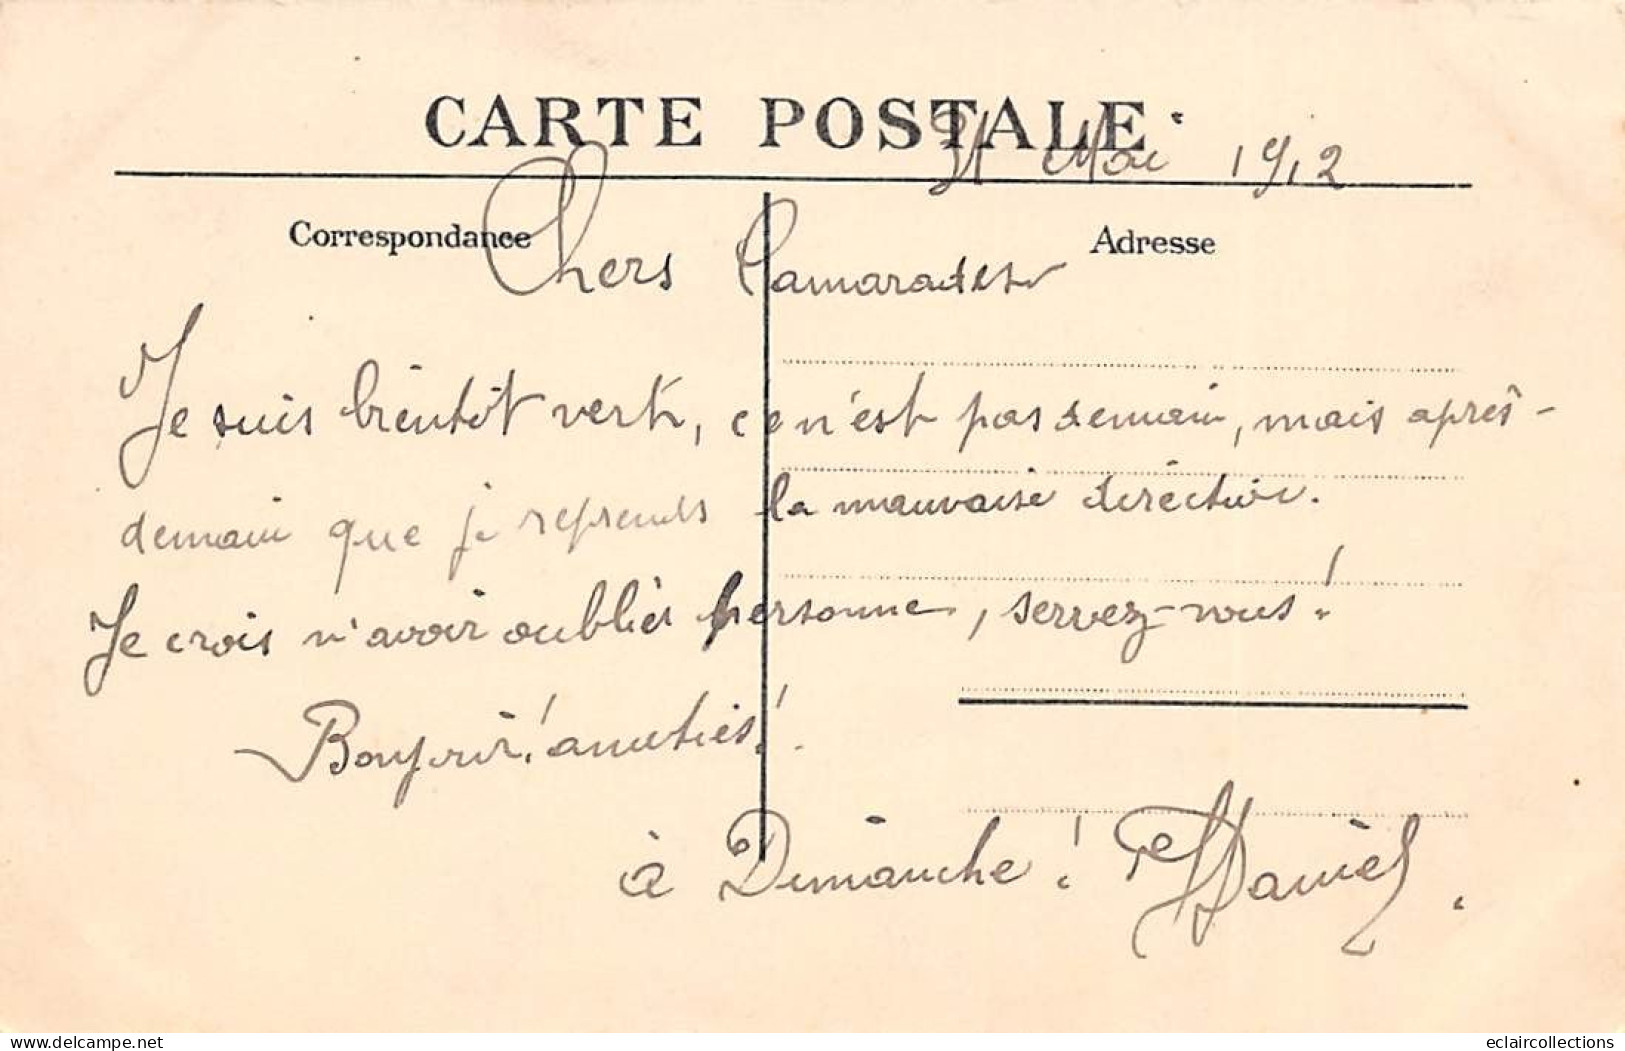 CARTE POSTALE
31 Mai 1912
Correspondance
Adresse
Chers Camarades
Je suis bientôt vert, ce n'est pas demain, mais après-
demain que je reprends la mauvaise direction.
Je crois n'avoir oublier personne, servez-vous!
Bonjour! amitiés!
à Dimanche! Daniel.
www.delcampe.net
eclaircollections